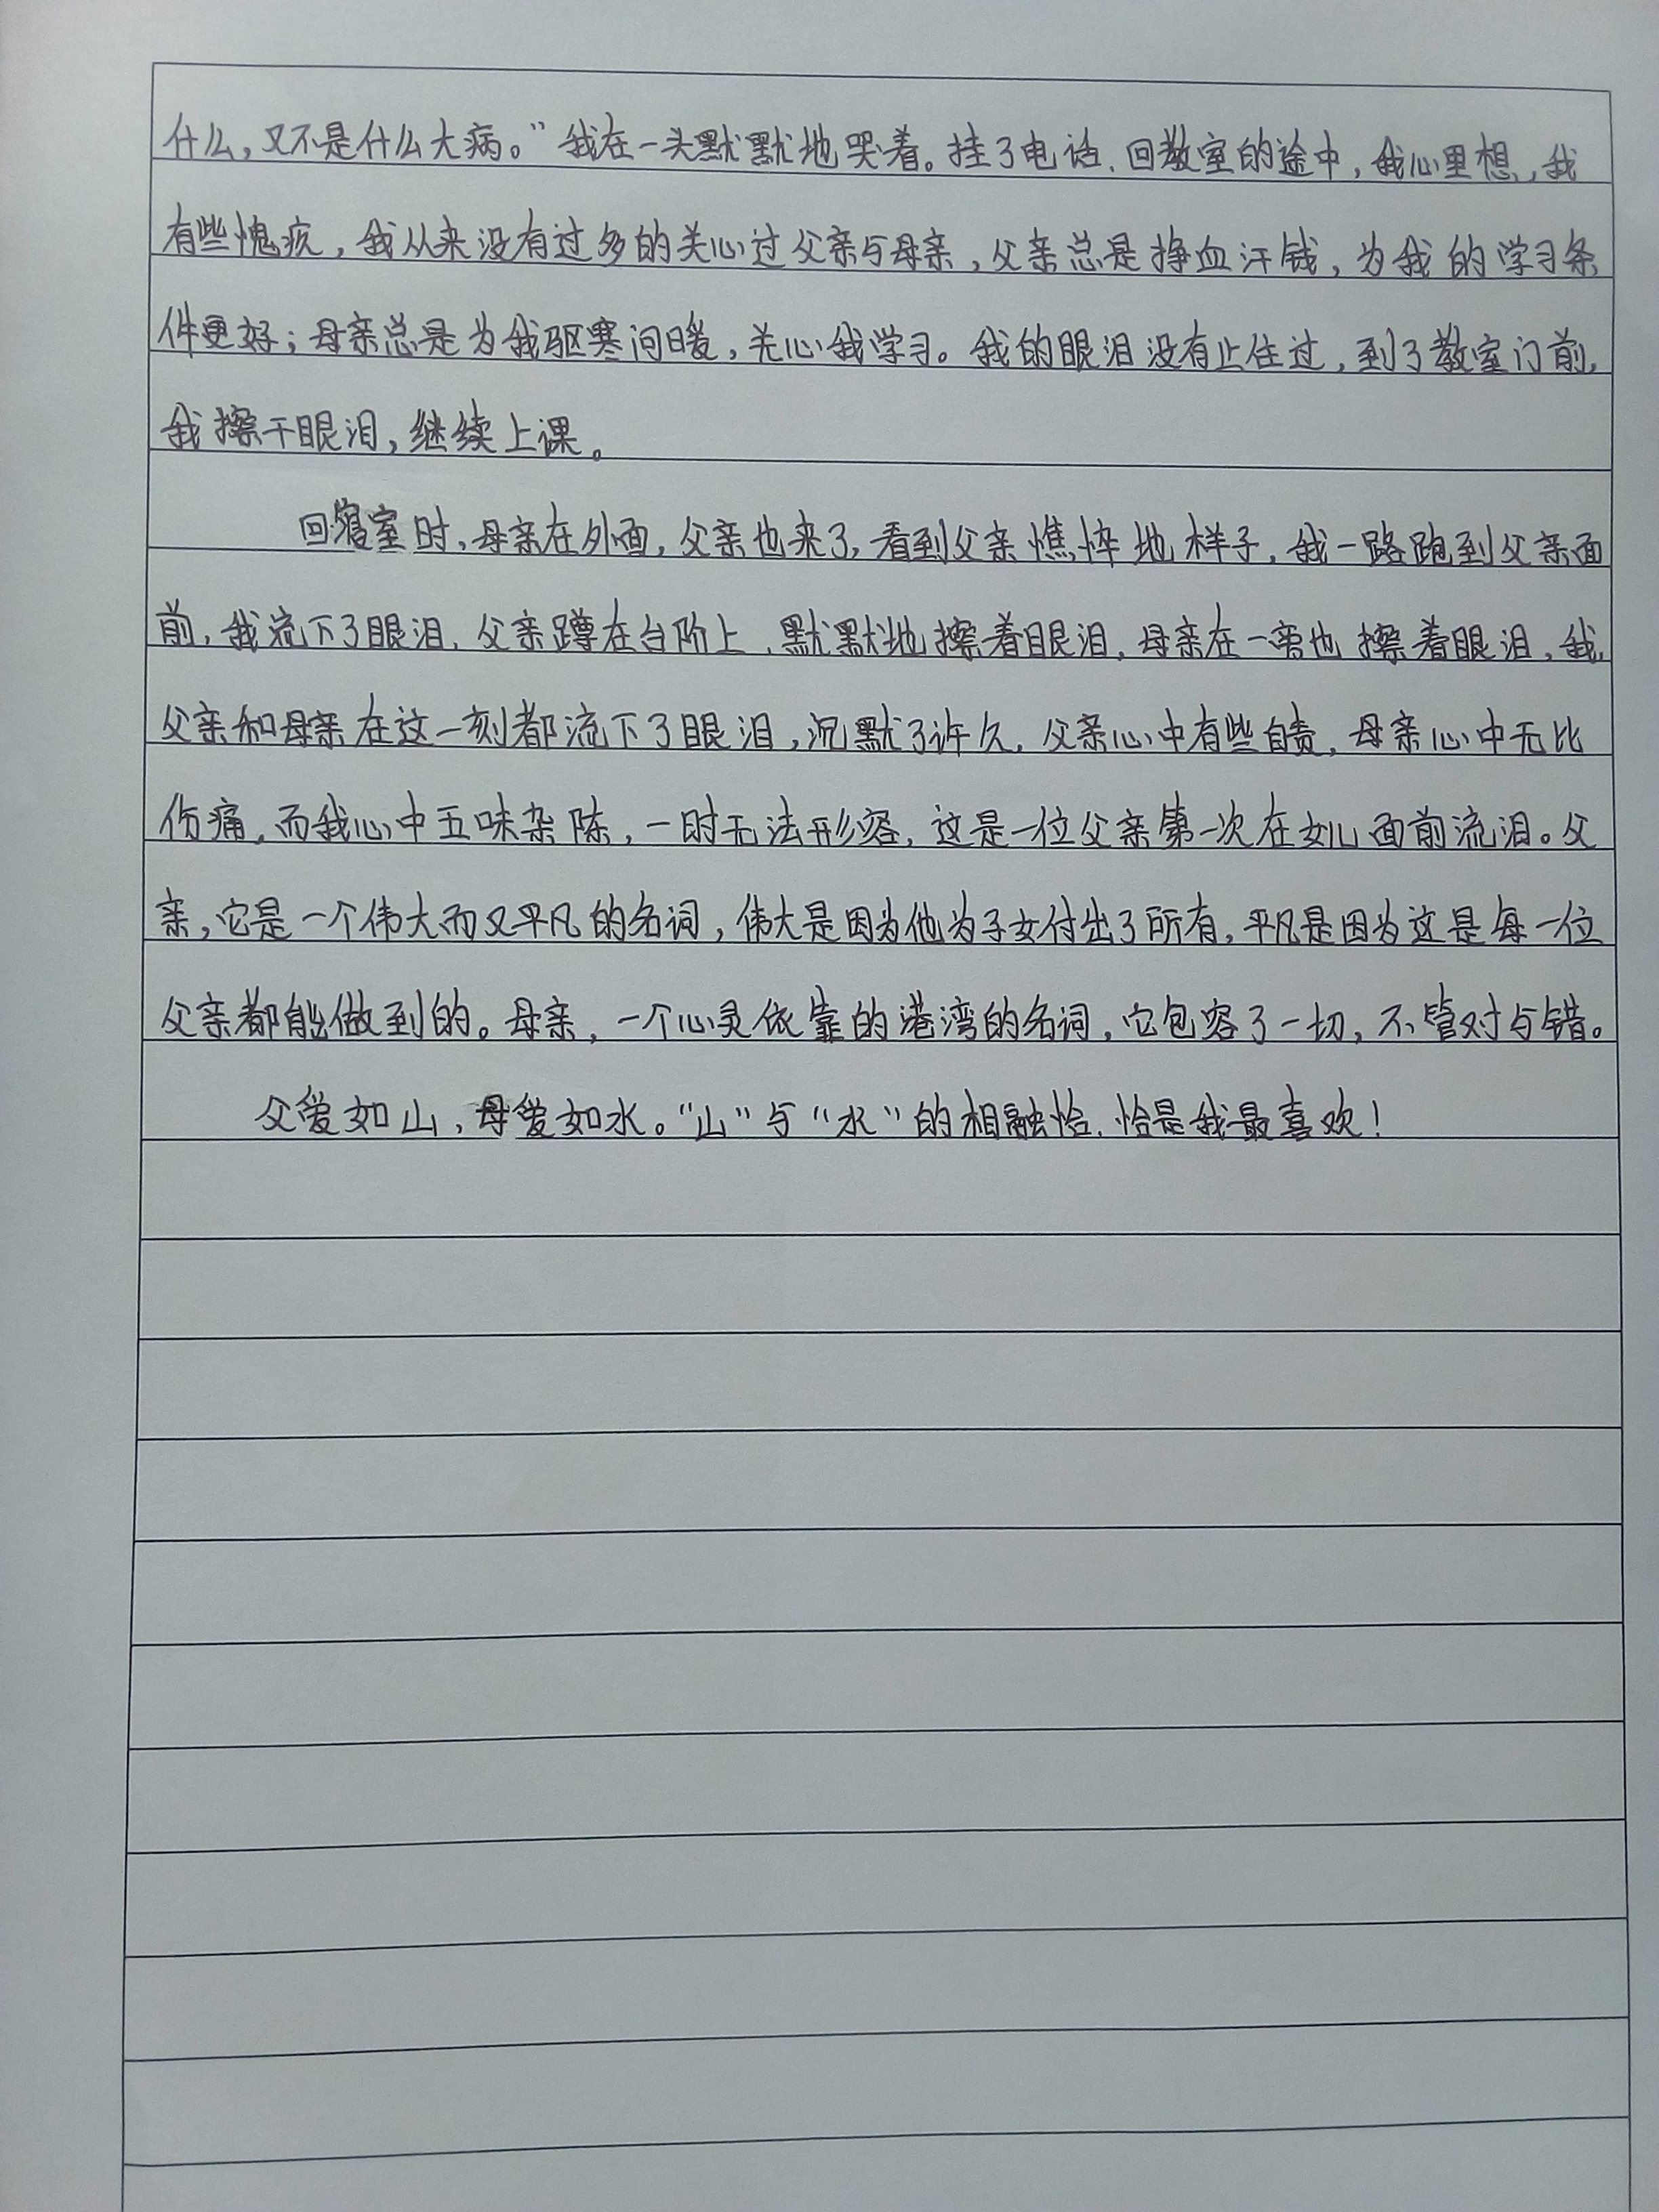 什么，又不是什么大病。”我在一头默默地哭着。挂了电话，回教室的途中，我心里想，我
有些愧疚，我从来没有过多的关心过父亲与母亲，父亲总是挣血汗钱，为我的学习条
件更好；母亲总是为我驱寒问暖，关心我学习。我的眼泪没有止住过，到了教室门前，
我擦干眼泪，继续上课。
回寝室时，母亲在外面，父亲也来了，看到父亲憔悴地样子，我一路跑到父亲面
前，我流下了眼泪，父亲蹲在台阶上，默默地擦着眼泪，母亲在一旁也擦着眼泪，我，
父亲和母亲在这一刻都流下了眼泪，沉默了许久，父亲心中有些自责，母亲心中无比
伤痛，而我心中五味杂陈，一时无法形容，这是一位父亲第一次在女儿面前流泪。父
亲，它是一个伟大而又平凡的名词，伟大是因为他为子女付出了所有，平凡是因为这是每一位
父亲都能做到的。母亲，一个心灵依靠的港湾的名词，它包容了一切，不管对与错。
父爱如山，母爱如水。“山”与“水”的相融恰，恰是我最喜欢！